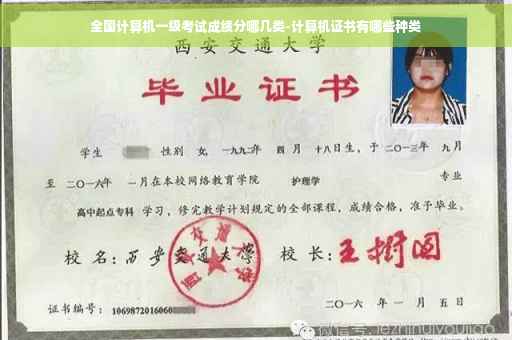 全国计算机一级考试成绩分哪几类-计算机证书有哪些种类
西安交通大学
毕业证书
学生 性别 女, 一九九二年 四月 十八日生, 于二〇一三年 九月
至 二〇一六年 一月在本校网络教育学院 护理学 专业
高中起点专科 学习, 修完教学计划规定的全部课程, 成绩合格, 准予毕业。
校名: 西安交通大学 校长: 王树国
西安交通大学
证书编号: 1069872016060
二〇一六年一月五日
微信号: jezhihuiyoujiao